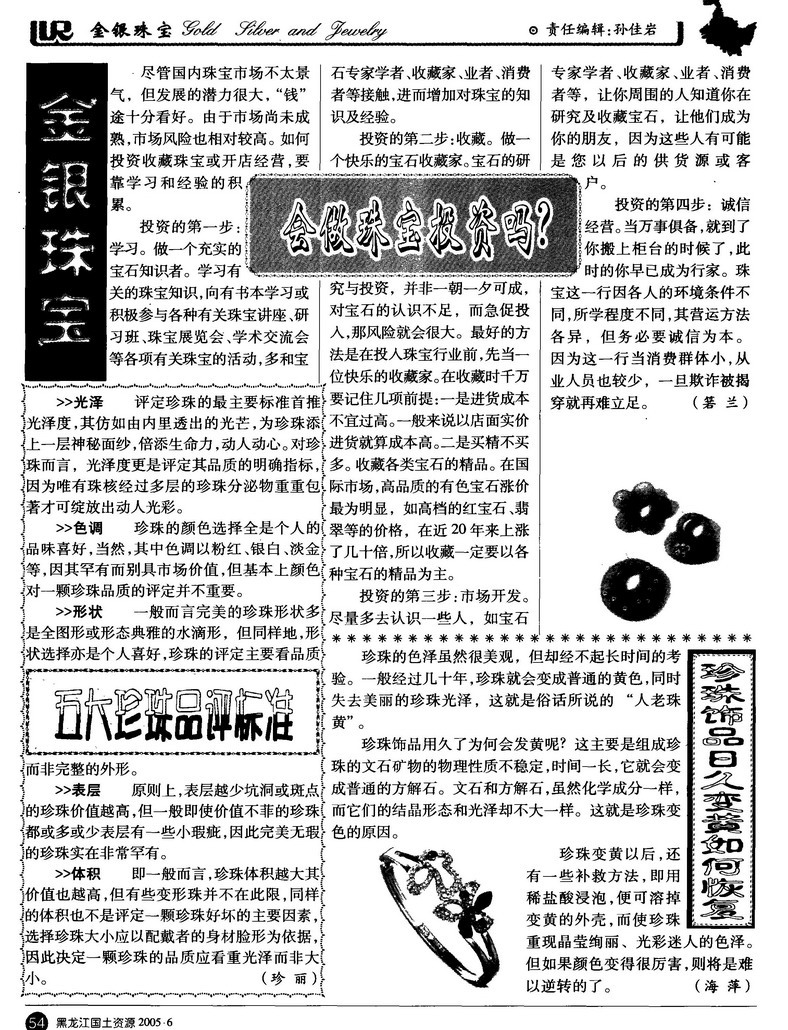 金银珠宝 Gold Silver and Jewelry
责任编辑:孙佳岩
金银珠宝
会做珠宝投资吗?
尽管国内珠宝市场不太景
气，但发展的潜力很大，“钱”
途十分看好。由于市场尚未成
熟,市场风险也相对较高。如何
投资收藏珠宝或开店经营,要
靠学习和经验的积
累。
投资的第一步:
学习。做一个充实的
宝石知识者。学习有
关的珠宝知识,向有书本学习或
积极参与各种有关珠宝讲座、研
习班、珠宝展览会、学术交流会
等各项有关珠宝的活动，多和宝
石专家学者、收藏家、业者、消费
者等接触,进而增加对珠宝的知
识及经验。
投资的第二步:收藏。做一
个快乐的宝石收藏家。宝石的研
究与投资，并非一朝一夕可成，
对宝石的认识不足，而急促投
入,那风险就会很大。最好的方
法是在投入珠宝行业前,先当一
位快乐的收藏家。在收藏时千万
要记住几项前提:一是进货成本
不宜过高。一般来说以店面实价
进货就算成本高。二是买精不买
多。收藏各类宝石的精品。在国
际市场,高品质的有色宝石涨价
最为明显，如高档的红宝石、翡
翠等的价格，在近20年来上涨
了几十倍,所以收藏一定要以各
种宝石的精品为主。
投资的第三步:市场开发。
尽量多去认识一些人，如宝石
专家学者、收藏家、业者、消费
者等，让你周围的人知道你在
研究及收藏宝石，让他们成为
你的朋友，因为这些人有可能
是您以后的供货源或客
户。
投资的第四步：诚信
经营。当万事俱备,就到了
你搬上柜台的时候了，此
时的你早已成为行家。珠
宝这一行因各人的环境条件不
同,所学程度不同,其营运方法
各异，但务必要诚信为本。
因为这一行当消费群体小,从
业人员也较少，一旦欺诈被揭
穿就再难立足。 （箬 兰）
五大珍珠品评标准
>>光泽 评定珍珠的最主要标准首推
光泽度,其仿如由内里透出的光芒,为珍珠添
上一层神秘面纱,倍添生命力,动人动心。对珍
珠而言，光泽度更是评定其品质的明确指标，
因为唯有珠核经过多层的珍珠分泌物重重包
著才可绽放出动人光彩。
>>色调 珍珠的颜色选择全是个人的
品味喜好,当然,其中色调以粉红、银白、淡金
等,因其罕有而别具市场价值,但基本上颜色
对一颗珍珠品质的评定并不重要。
>>形状 一般而言完美的珍珠形状多
是全图形或形态典雅的水滴形，但同样地,形
状选择亦是个人喜好,珍珠的评定主要看品质
而非完整的外形。
>>表层 原则上,表层越少坑洞或斑点
的珍珠价值越高,但一般即使价值不菲的珍珠
都或多或少表层有一些小瑕疵,因此完美无瑕
的珍珠实在非常罕有。
>>体积 即一般而言,珍珠体积越大其
价值也越高,但有些变形珠并不在此限,同样
的体积也不是评定一颗珍珠好坏的主要因素，
选择珍珠大小应以配戴者的身材脸形为依据，
因此决定一颗珍珠的品质应看重光泽而非大
小。 （珍 丽）
珍珠饰品日久变黄如何恢复
珍珠的色泽虽然很美观，但却经不起长时间的考
验。一般经过几十年，珍珠就会变成普通的黄色,同时
失去美丽的珍珠光泽，这就是俗话所说的 “人老珠
黄”。
珍珠饰品用久了为何会发黄呢？这主要是组成珍
珠的文石矿物的物理性质不稳定,时间一长,它就会变
成普通的方解石。文石和方解石,虽然化学成分一样，
而它们的结晶形态和光泽却不大一样。这就是珍珠变
色的原因。
珍珠变黄以后,还
有一些补救方法,即用
稀盐酸浸泡,便可溶掉
变黄的外壳,而使珍珠
重现晶莹绚丽、光彩迷人的色泽。
但如果颜色变得很厉害,则将是难
以逆转的了。 （海 萍）
54 黑龙江国土资源 2005·6